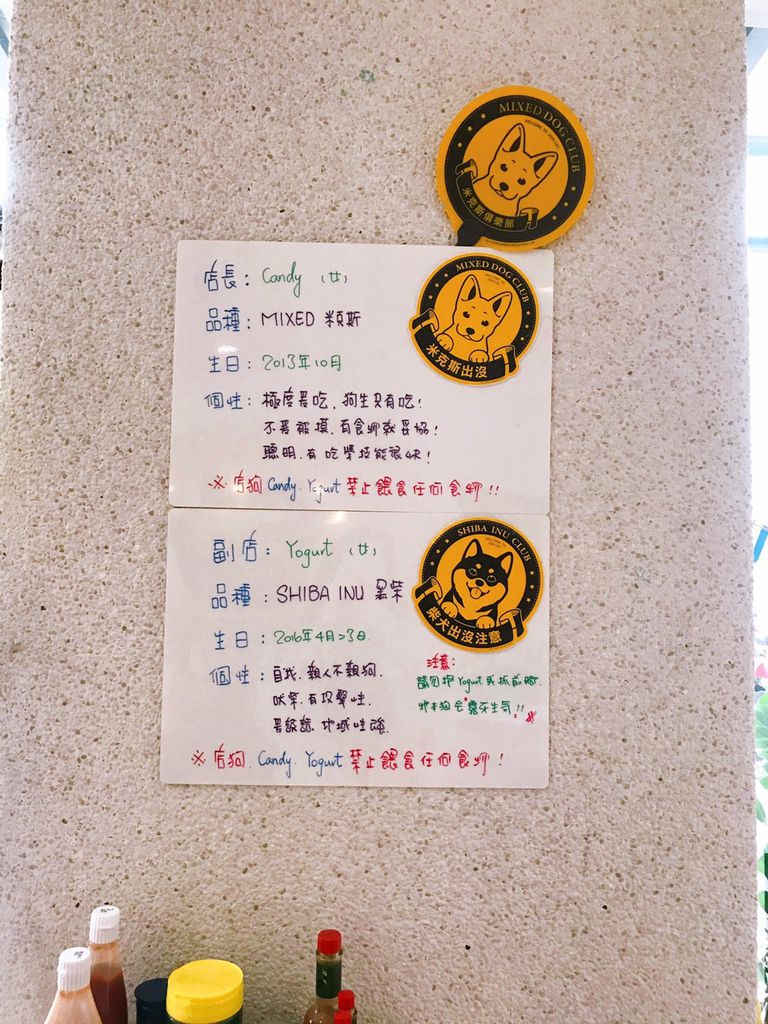 MIXED DOG CLUB
米克斯俱樂部
店長: Candy (女)
MIXED DOG CLUB
米克斯出沒
品種: MIXED 米克斯
生日: 2013年10月
個性: 極度愛吃、狗生只有吃!
不愛被摸、有食物就妥協!
聰明、有吃學技能很快!
※店狗 Candy. Yogurt 禁止餵食任何食物!!
副店: Yogurt (女)
SHIBA INU CLUB
柴犬出沒注意
品種: SHIBA INU 黑柴
生日: 2016年4月23日
個性: 自我、親人不親狗、
吠客、有攻擊性、
地域性強
注意:
請勿抱Yogurt或抓前腳、
此本狗會露牙生氣!!
※店狗、Candy. Yogurt 禁止餵食任何食物!